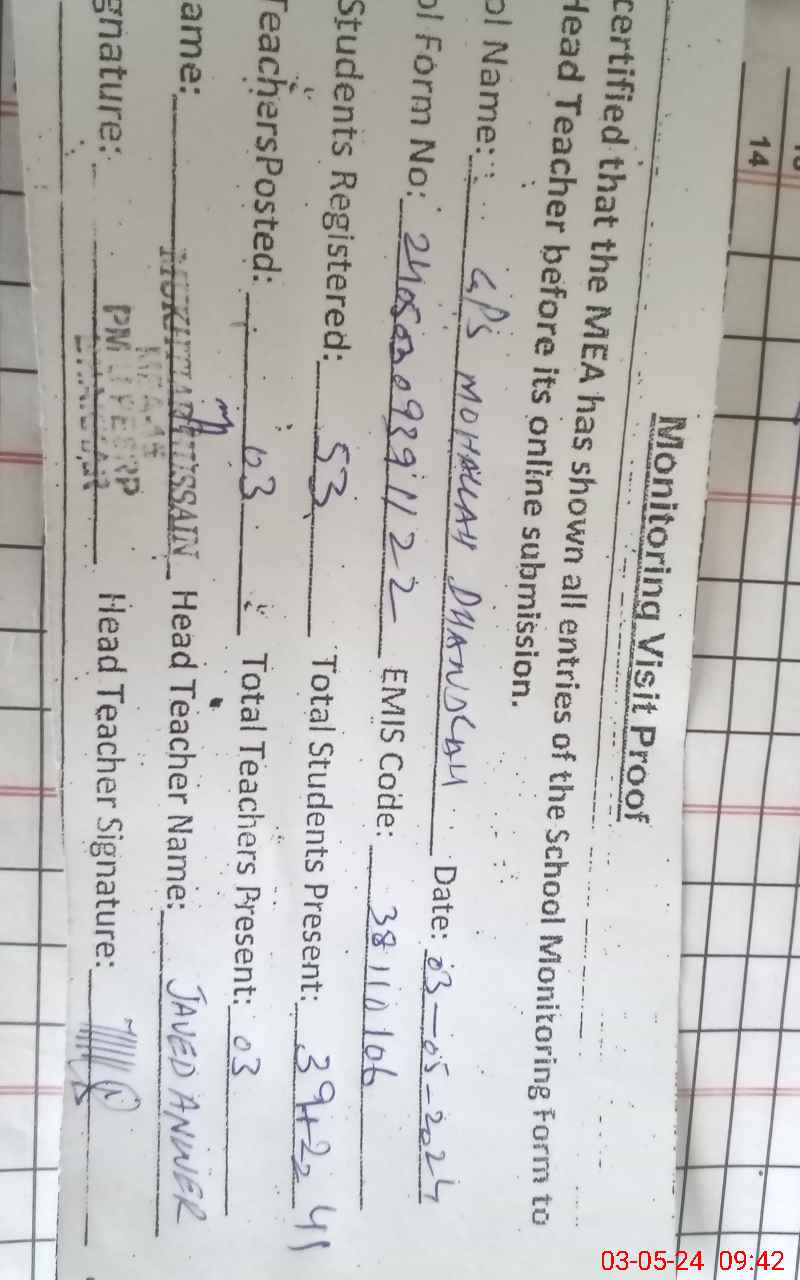 14
Monitoring Visit Proof
certified that the MEA has shown all entries of the School Monitoring Form to
Head Teacher before its online submission.
ol Name: GPS MOHALLAH DHANDLAH Date: 03-05-2024
ol Form No: 24050309391122 EMIS Code: 38110106
Students Registered: 53 Total Students Present: 39+2=41
TeachersPosted: 03 Total Teachers Present: 03
ame: HUSSAIN Head Teacher Name: JAVED ANWER
gnature: Head Teacher Signature:
03-05-24 09:42